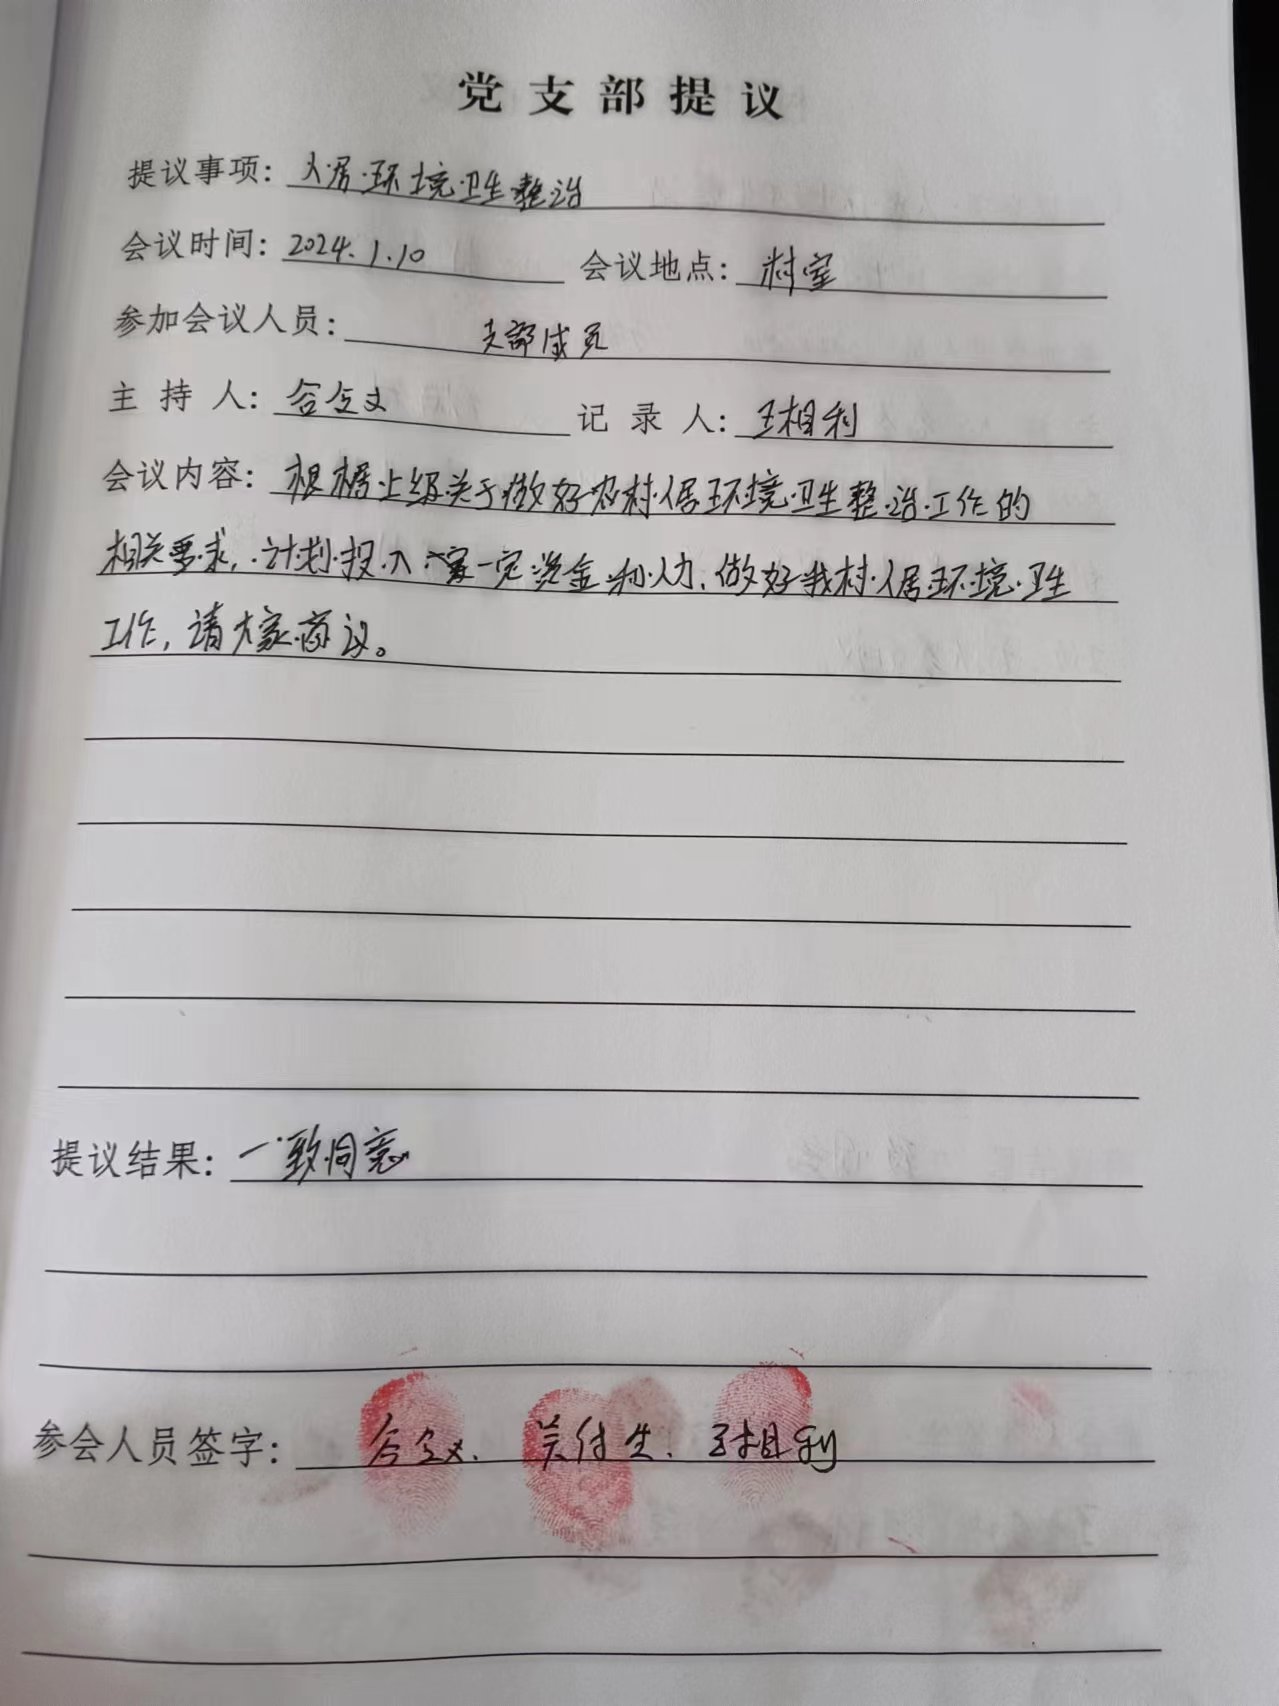 党支部提议
提议事项：人居环境卫生整治
会议时间：2024.1.10 会议地点：村室
参加会议人员：支部成员
主持人：合令义 记录人：王相利
会议内容：根据上级关于做好农村人居环境卫生整治工作的
相关要求，计划投入一定资金和人力，做好我村人居环境卫生
工作，请大家商议。
提议结果：一致同意
参会人员签字：合令义、关付生、王相利